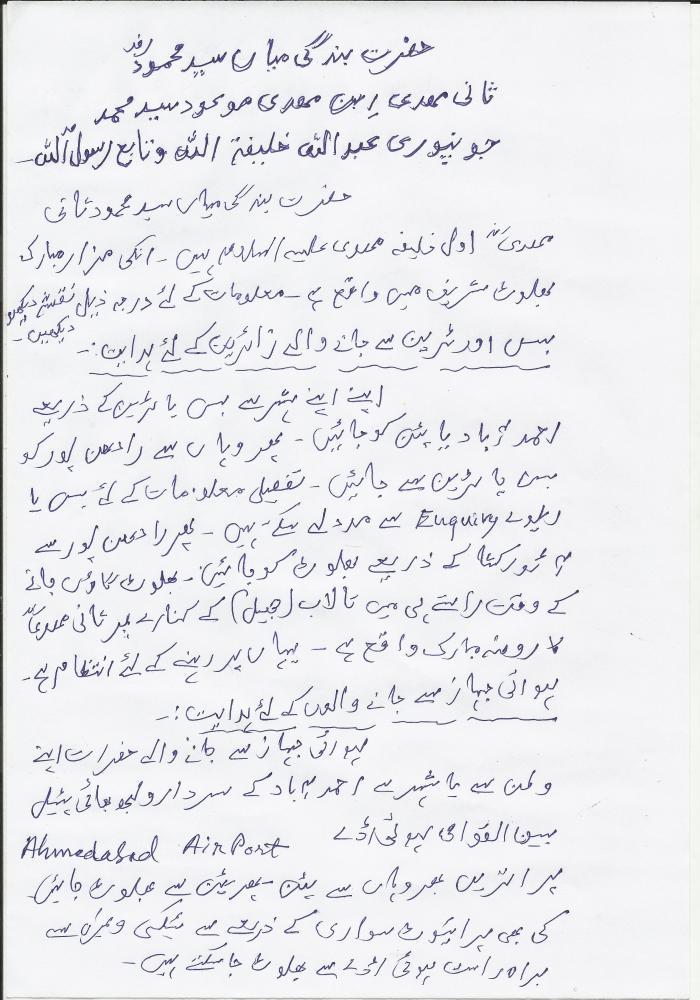 حضرت بندگی میاں سید محمودؓ
ثانی مہدی اِبن مہدی موعود سید محمد
جونپوری عبداللہ خلیفۃ اللہ و تابع رسول اللہ۔
حضرت بندگی میاں سید محمود ثانی
مہدیؓ اول خلیفہ مہدی علیہ السلام ہیں۔ انکی مزار مبارک
بھلوٹ شریف میں واقع ہے۔ معلومات کے لئے درجہ ذیل نقشے
دیکھیں۔
بس اور ٹرین سے جانے والے زائرین کے لئے ہدایت:۔
اپنے اپنے شہر سے بس یا ٹرین کے ذریعے
احمدآباد یا پٹن کو جائیں۔ پھر وہاں سے رادھن پور کو
بس یا ٹرین سے جائیں۔ تفصیلی معلومات کے لئے بس یا
ریلوے Enquiry سے مدد لے سکتے ہیں۔ پھر رادھن پور سے
آٹو رکشا کے ذریعے بھلوٹ کو جائیں۔ بھلوٹ گاؤں جانے
کے وقت راستے ہی میں تالاب (جھیل) کے کنارے پر ثانی مہدیؓ
کا روضہ مبارک واقع ہے۔ یہاں پر رہنے کے لئے انتظام ہے۔
ہوائی جہاز سے جانے والوں کے لئے ہدایت:۔
ہوائی جہاز سے جانے والے حضرات اپنے
وطن سے یا شہر سے احمدآباد کے سردار ولبھ بھائی پٹیل
بین القوامی ہوائی اڈے Ahmedabad AirPort
پر اتریں پھر وہاں سے پٹن۔ پھر پٹن سے بھلوٹ جائیں۔
کی بھی پرائیوٹ سواری کے ذریعے سے ٹیکسی وغیرہ سے
براہ راست ہوائی اڈے سے بھلوٹ جا سکتے ہیں۔